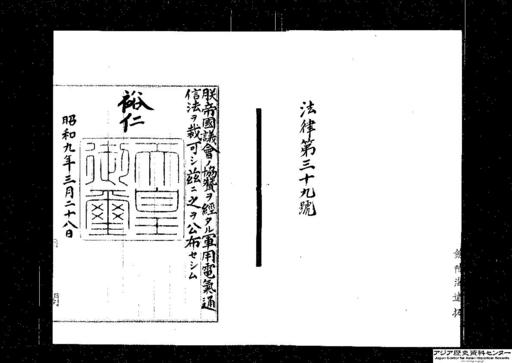 法律第三十九號
朕帝國議會ノ協贊ヲ經タル軍用電氣通
信法ヲ裁可シ茲ニ之ヲ公布セシム
裕仁
天皇
御璽
昭和九年三月二十八日
アジア歴史資料センター
Japan Center for Asian Historical Records